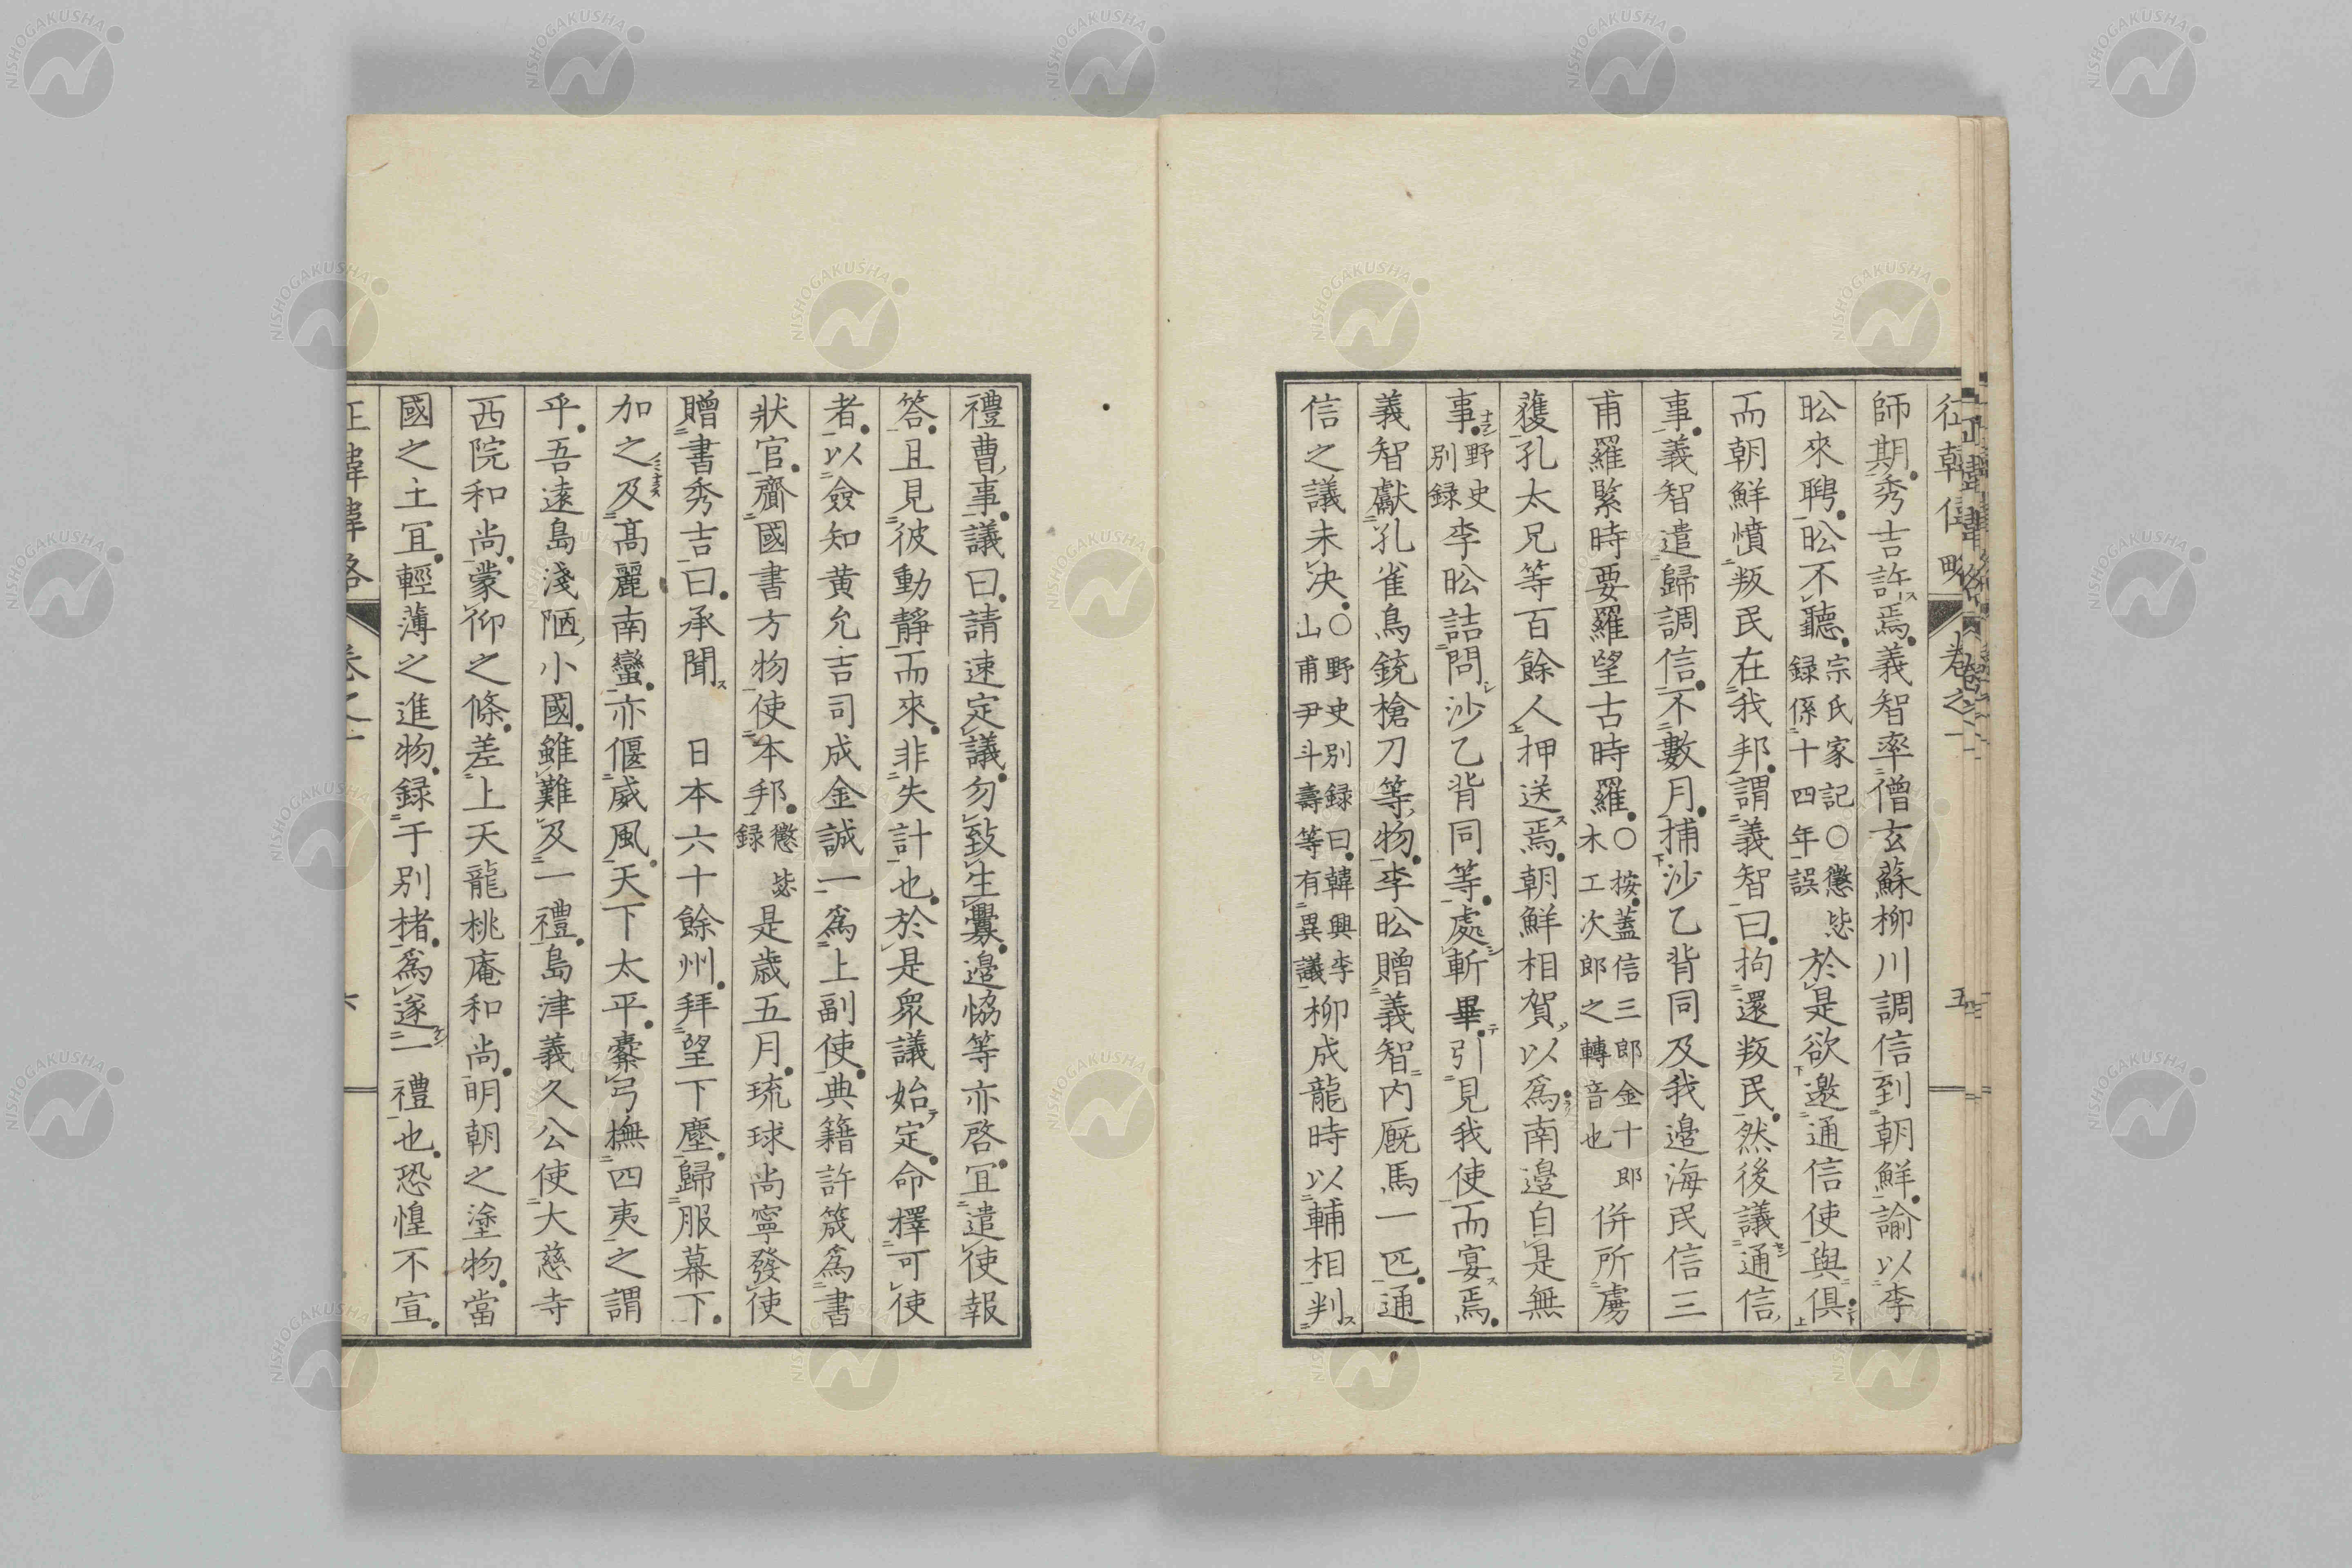 師期秀吉許焉義智率僧玄蘇柳川調信到朝鮮諭以李
昖來聘昖不聽宗氏家記〇懲毖録係十四年誤於是欲邀通信使與俱
而朝鮮憤叛民在我邦謂義智曰拘還叛民然後議通信
事義智遣歸調信不數月捕沙乙背同及我邊海民信三
甫羅緊時要羅望古時羅〇按蓋信三郎金十郎木工次郎之轉音也併所虜
獲孔太兄等百餘人押送焉朝鮮相賀以爲南邊自是無
事野史別録李昖詰問沙乙背同等處斬畢引見我使而宴焉
義智獻孔雀鳥銃槍刀等物李昖贈義智内厩馬一匹通
信之議未決〇野史別録曰韓興李山甫尹斗壽等有異議柳成龍時以輔相判
禮曹事議曰請速定議勿致生釁邊恊等亦啓宜遣使報
答且見彼動靜而來非失計也於是衆議始定命擇可使
者以僉知黄允吉司成金誠一爲上副使典籍許筬爲書
狀官齎國書方物使本邦懲毖録是歳五月琉球尚寧發使
贈書秀吉曰承聞 日本六十餘州拜望下塵歸服幕下
加之及高麗南蠻亦偃威風天下太平櫜弓撫四夷之謂
乎吾遠島淺陋小國雖難及一禮島津義久公使大慈寺
西院和尚蒙仰之條差上天龍桃庵和尚明朝之塗物當
國之土宜輕薄之進物録于別楮爲遂一禮也恐惶不宣